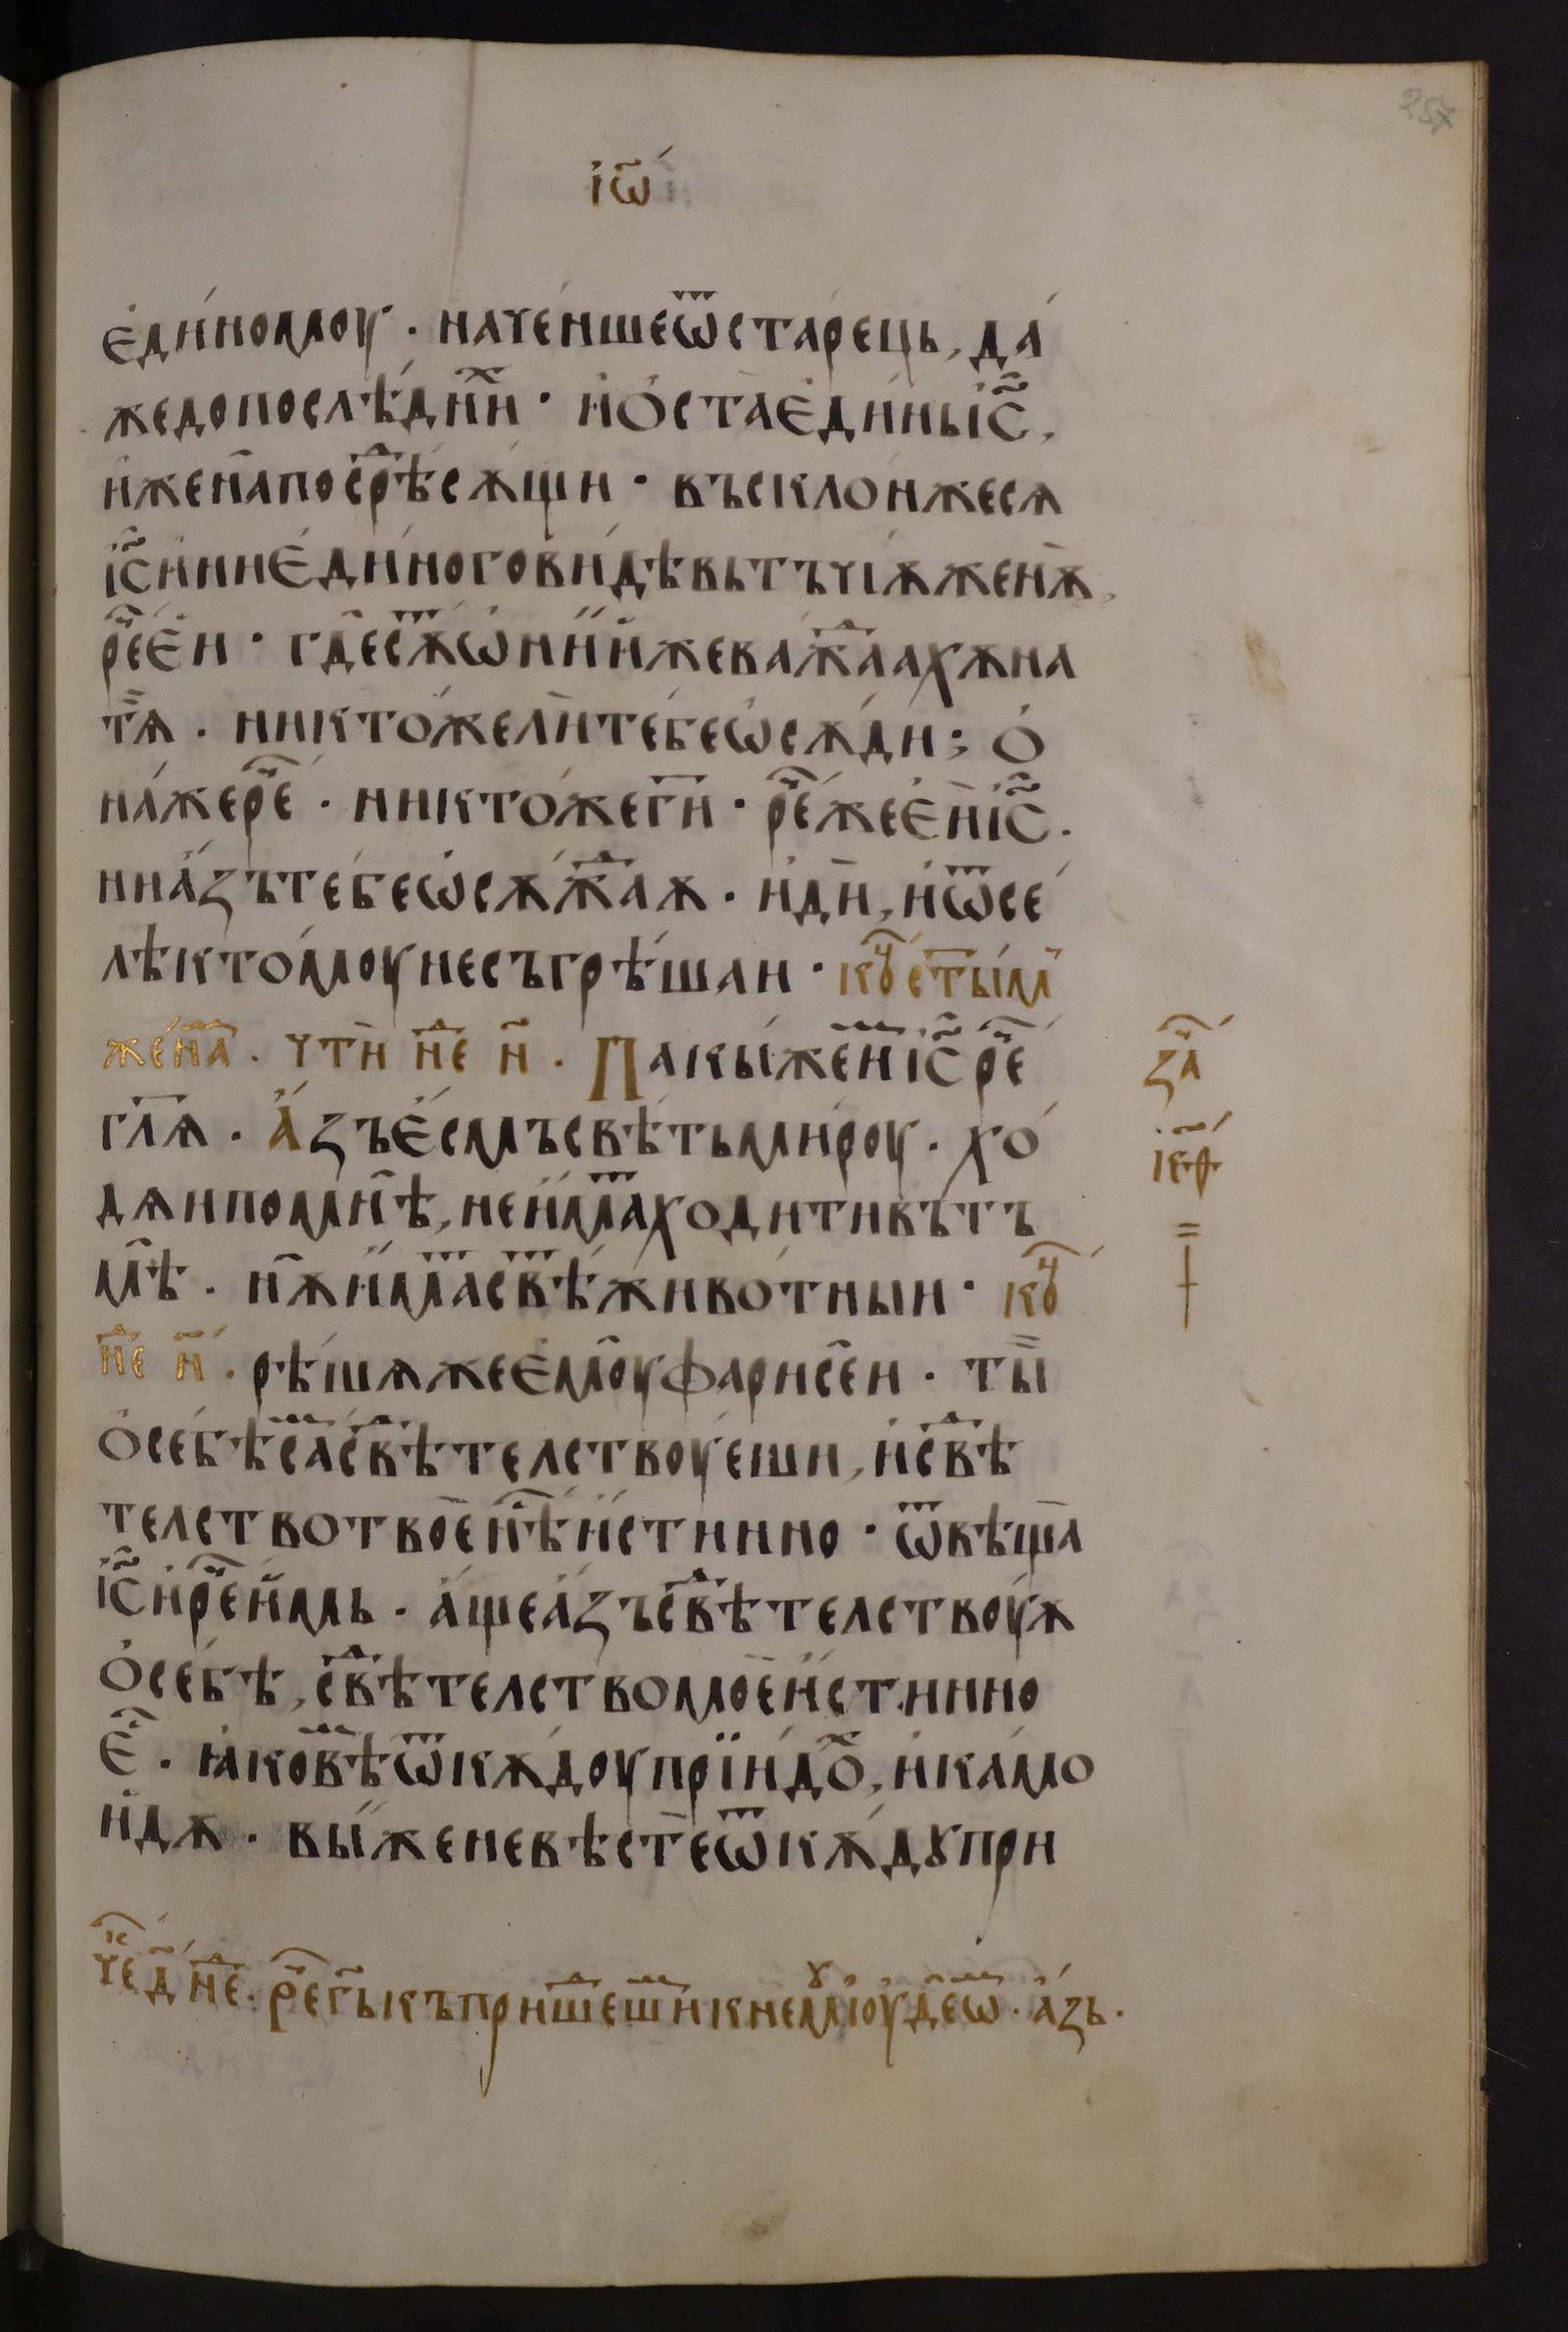 257
і҆ѡ҃
є҆ди́номоу · наче́нше ѿ ста́рець, да́
же до послѣ́дни҇х · и҆ ѻ҆ста̀ є҆ди́нь і҆с҃,
и҆ жена̀ посрⷣѣ сѫщи · въсклонжесѧ
і҆с҃ и҆ ни є҆ди́ного ви́дѣвь тъчїѫ женѫ̀,
рⷱе є҆и · где сѫⷮ ѡ҆ни и҆же важⷣаахѫ на
тѧ̀ . никто́же лѝ тебе ѡ҆сѫ́ди ; ѻ҆
на́же рⷱе . никто́же гн҃ · рⷱе́ же є҆и і҆с҃ .
ни а҆зъ тебе ѡ҆сѫжⷣаѫ . и҆дѝ, и҆ ѿселѣ
лѣ ктомоу не съгрѣ́шаи · кⷰꙋ ст҃ы́мь
же́намⷨ . чтѝ нⷣе н҃ . Пакы́ же имⷨ і҆с҃ рⷱе
гл҃ѧ . А҆зъ є҆смъ свѣ́ть ми́роу . хо́
дѧи по мнѣ̀, не и҆маⷮ ходити въ тъ
мѣ̀ . нѫ̀ и҆маⷮ свѣⷮ живо́тныи · кⷰꙋ
нⷣе н҃ . рѣ́шѧ же є҆моу̀ фарисе́и . ты̀
ѻ҆ себѣ̀ самⷨ свⷣѣтелствоу́еши, и҆ свⷣѣ
телство твоѐ нⷭѣ и҆́стинно · ѿвѣща̀
і҆с҃ и҆ рⷱе и҆мь . а҆́ще а҆́зъ свⷣѣтелствоуѫ
ѻ҆ себѣ̀, свⷣѣтелство моѐ и҆́стинно
є҆ⷭ . ꙗ҆ко вѣⷨ ѿкѫ́доу прїидоⷯ, и҆ ка́мо
и҆дѫ̀ . вы́ же не вѣстѐ ѿкѫ́дꙋ при
зⷱа
і҆еⷴ
чеⷦ҇ д҃ нⷣе . рⷱе гь҃ къ пришⷣешⷨи к немꙋ і҆оудеѡⷨ . а҆́зь .